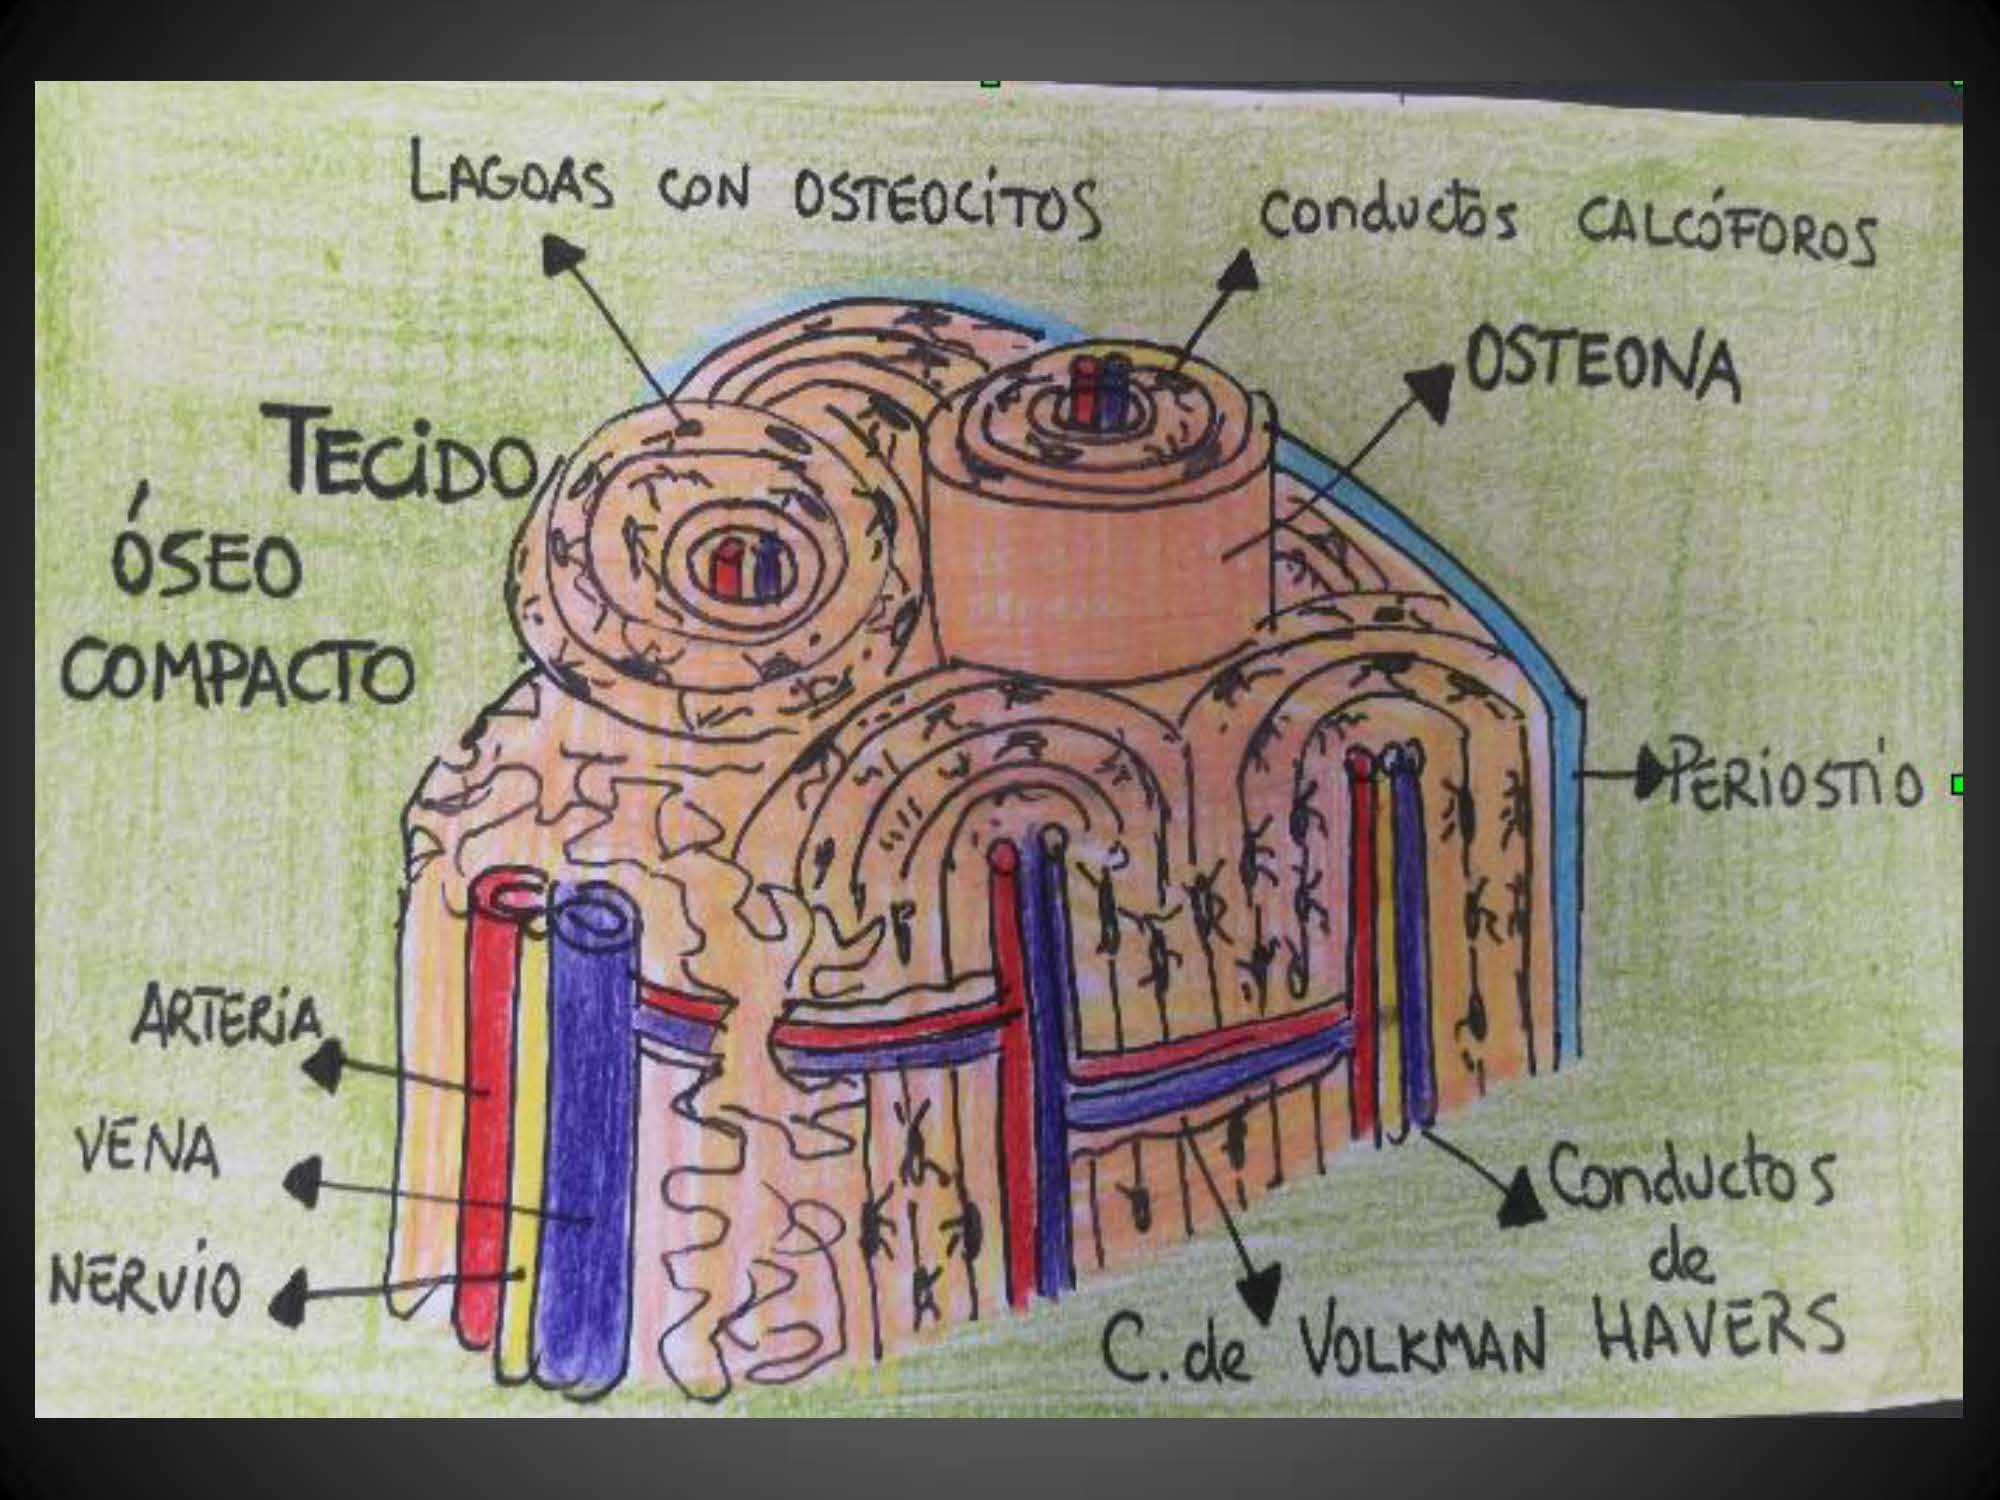 LAGOAS CON OSTEOCITOS
conductos CALCÓFOROS
OSTEONA
TECIDO
ÓSEO
COMPACTO
PERIOSTIO
ARTERIA
VENA
NERVIO
Conductos
de
HAVERS
C. de VOLKMAN